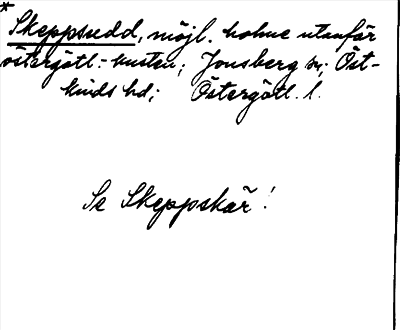 *
Skeppsudd, möjl. holme utanför
östergötl.-kusten; Jonsberg sn; Öst-
kinds hd; Östergötl. l.
Se Skeppskär!